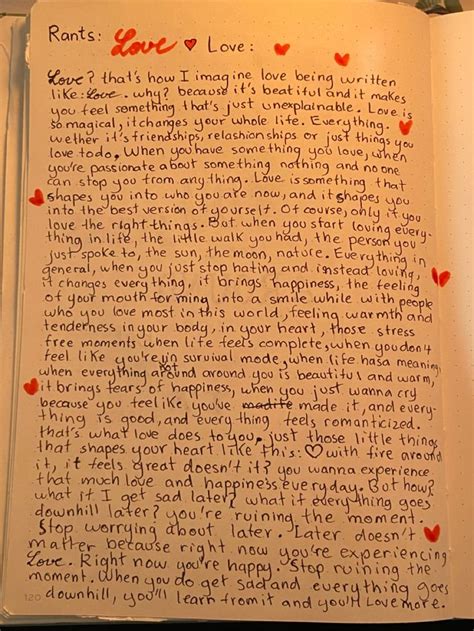 Rants: Love ♥ Love:
Love? that's how I imagine love being written
like: Love. why? because it's beatiful and it makes
you feel something that's just unexplainable. Love is
so magical, it changes your whole life. Everything.
wether it's friendships, relashionships or just things you
love to do. When you have something you love, when
you're passionate about something nothing and no one
can stop you from anything. Love is something that
shapes you into who you are now, and it shapes you
into the best version of yourself. Of course, only if you
love the right things. But when you start loving every-
thing in life, the little walk you had, the person you
just spoke to, the sun, the moon, nature. Everything in
general, when you just stop hating and instead loving,
it changes everything, it brings happiness, the feeling
of your mouth forming into a smile while with people
who you love most in this world, feeling warmth and
tenderness in your body, in your heart, those stress
free moments when life feels complete, when you don't
feel like you're in survival mode, when life has a meaning,
when everything around around you is beautiful and warm,
it brings tears of happiness, when you just wanna cry
because you feel like you've made it, and every-
thing is good, and every thing feels romanticized.
that's what love does to you, just those little things
that shapes your heart like this: ♡ with fire around
it, it feels great doesn't it? you wanna experience
that much love and happiness everyday. But how?
what if I get sad later? what if everything goes
downhill later? you're ruining the moment.
Stop worrying about later. Later doesn't
matter because right now you're experiencing
Love. Right now you're happy. Stop ruining the
moment. When you do get sad and everything goes
downhill, you'll learn from it and you'll Love more.
120